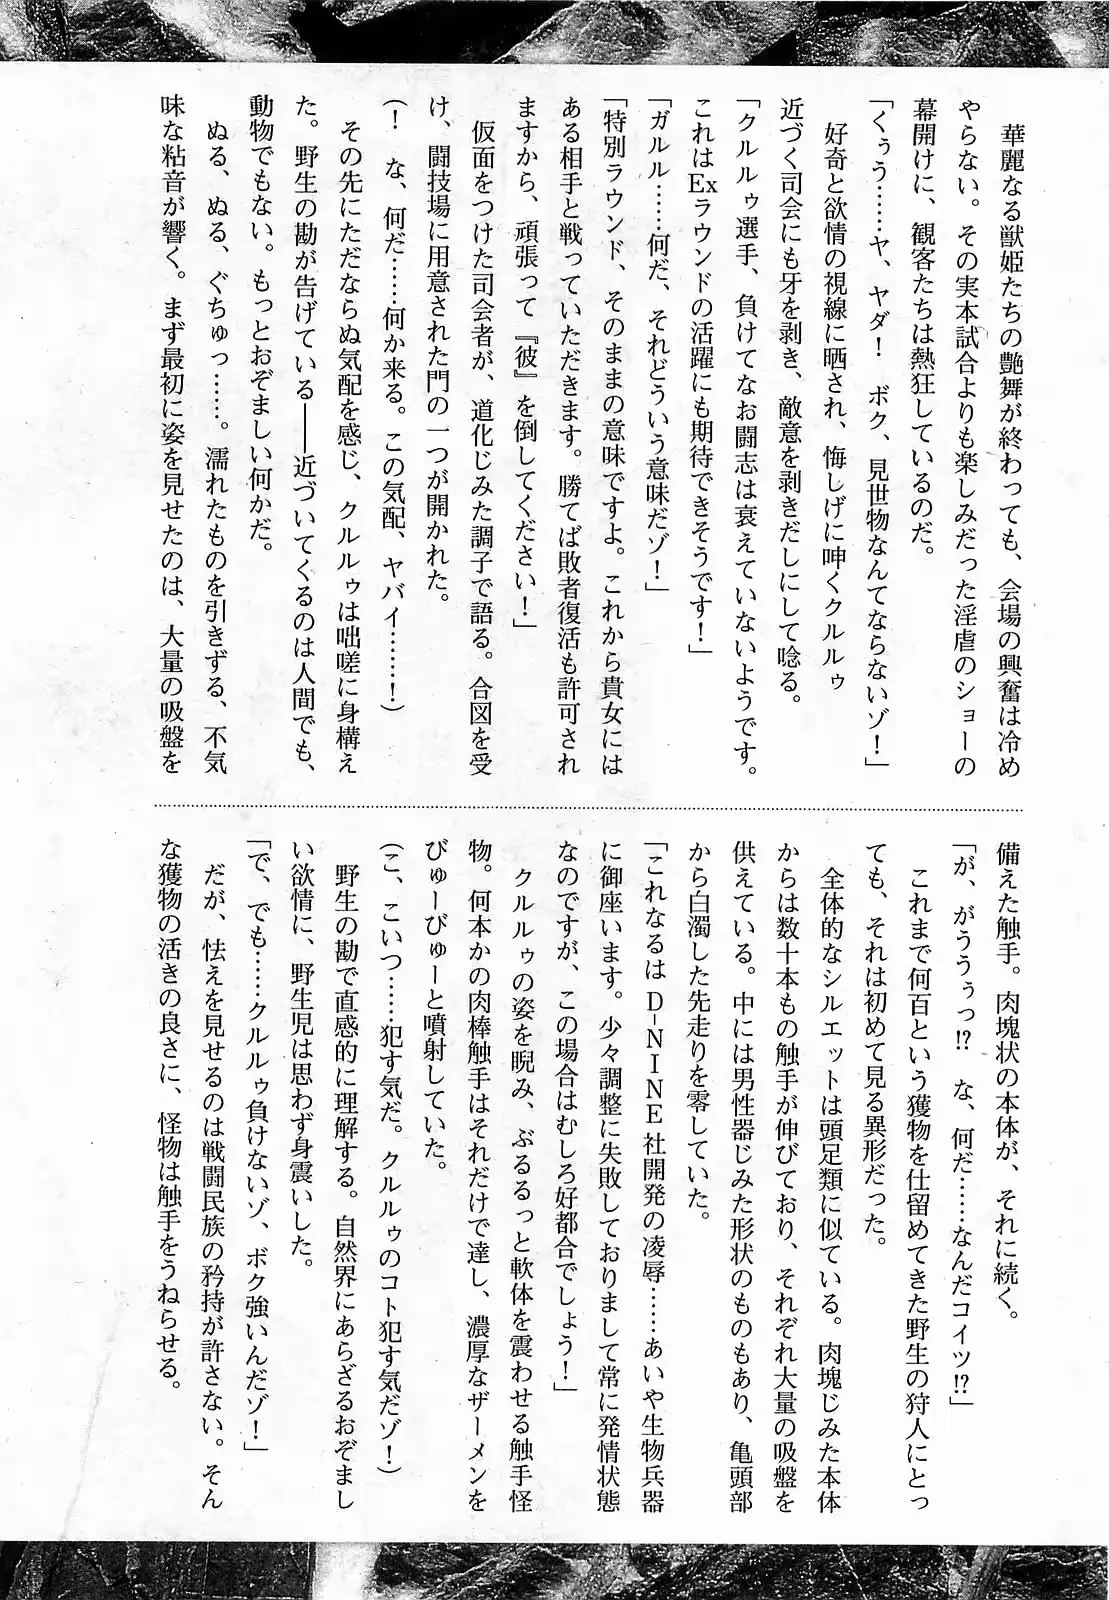 華麗なる獣姫たちの艶舞が終わっても、会場の興奮は冷め
やらない。その実本試合よりも楽しみだった淫虐のショーの
幕開けに、観客たちは熱狂しているのだ。
「くぅう……ヤ、ヤダ！　ボク、見世物なんてならないゾ！」
好奇と欲情の視線に晒され、悔しげに呻くクルルゥ
近づく司会にも牙を剥き、敵意を剥きだしにして唸る。
「クルルゥ選手、負けてなお闘志は衰えていないようです。
これはExラウンドの活躍にも期待できそうです！」
「ガルル……何だ、それどういう意味だゾ！」
「特別ラウンド、そのままの意味ですよ。これから貴女には
ある相手と戦っていただきます。勝てば敗者復活も許可され
ますから、頑張って『彼』を倒してください！」
仮面をつけた司会者が、道化じみた調子で語る。合図を受
け、闘技場に用意された門の一つが開かれた。
（！　な、何だ……何か来る。この気配、ヤバイ………！）
その先にただならぬ気配を感じ、クルルゥは咄嗟に身構え
た。野生の勘が告げている――近づいてくるのは人間でも、
動物でもない。もっとおぞましい何かだ。
ぬる、ぬる、ぐちゅっ……。濡れたものを引きずる、不気
味な粘音が響く。まず最初に姿を見せたのは、大量の吸盤を
備えた触手。肉塊状の本体が、それに続く。
「が、がううぅっ!?　な、何だ……なんだコイツ!?」
これまで何百という獲物を仕留めてきた野生の狩人にとっ
ても、それは初めて見る異形だった。
全体的なシルエットは頭足類に似ている。肉塊じみた本体
からは数十本もの触手が伸びており、それぞれ大量の吸盤を
供えている。中には男性器じみた形状のものもあり、亀頭部
から白濁した先走りを零していた。
「これなるはD-NINE社開発の凌辱……あいや生物兵器
に御座います。少々調整に失敗しておりまして常に発情状態
なのですが、この場合はむしろ好都合でしょう！」
クルルゥの姿を睨み、ぶるるっと軟体を震わせる触手怪
物。何本かの肉棒触手はそれだけで達し、濃厚なザーメンを
びゅーびゅーと噴射していた。
（こ、こいつ……犯す気だ。クルルゥのコト犯す気だゾ！）
野生の勘で直感的に理解する。自然界にあらざるおぞまし
い欲情に、野生児は思わず身震いした。
「で、でも……クルルゥ負けないゾ、ボク強いんだゾ！」
だが、怯えを見せるのは戦闘民族の矜持が許さない。そん
な獲物の活きの良さに、怪物は触手をうねらせる。